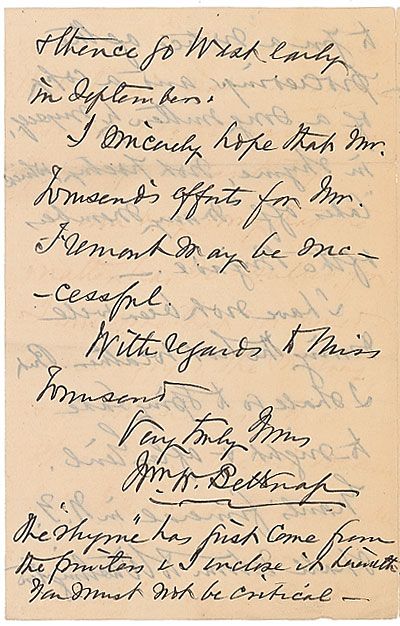 & thence go West early
in September.
I sincerely hope that Mr.
Townsend's efforts for Mr.
Fremont may be suc-
-cessful.
With regards to Miss
Townsend
Very truly Yours
Wm. W. Belknap
The "rhyme" has just come from
the printers & I inclose it herewith
You must not be critical –